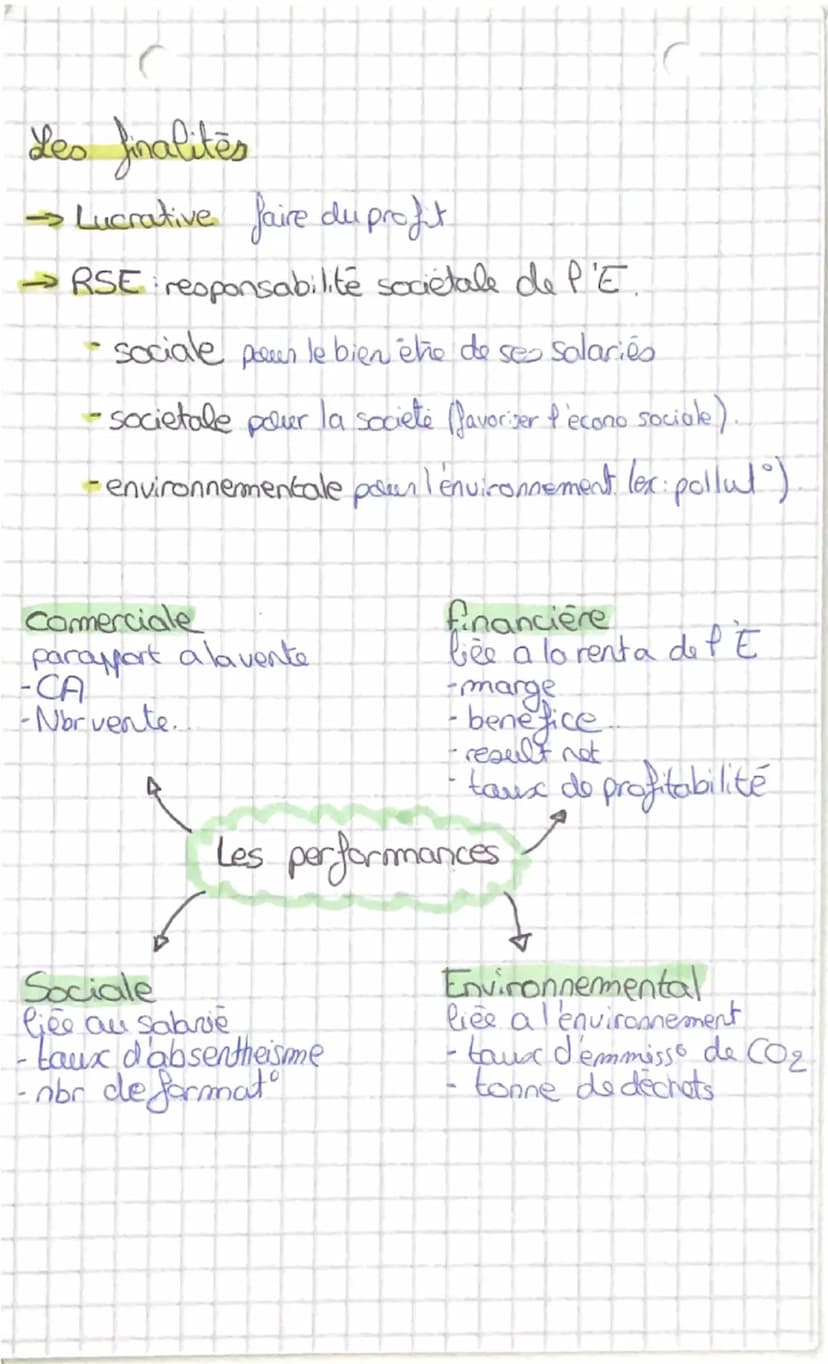 Les finalités
→ Lucrative faire du profit
→ RSE : responsabilité sociétale de l'E.
- sociale pour le bien être de ses salariés
- societale pour la societé (favoriser l'écono sociale).
- environnementale pour l'environnement (ex : pollut°)
Comerciale
par apport a la vente
- CA
- Nbr vente.
financière
liée a la renta de l'E
- marge
- benéfice
- result net
- taux de profitabilité
Les performances
Sociale
liée au salarié
- taux d'absentheisme
- nbr de format°
Environnemental
liée a l'environnement
- taux d'emmiss° de CO2
- tonne de déchets